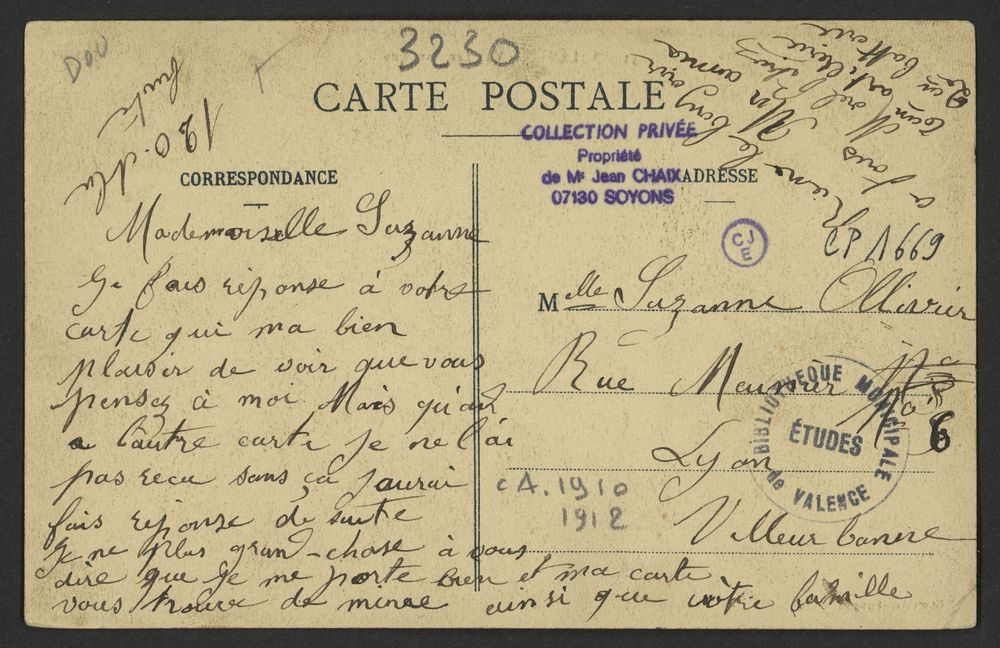 3230
CARTE POSTALE
COLLECTION PRIVÉE
Propriété
de Mr Jean CHAIX
07130 SOYONS
CORRESPONDANCE
ADRESSE
CJ
E
CP 1669
Mademoiselle Suzanne
Je fais réponse à votre
carte qui ma bien
plaisir de voir que vous
pensez à moi Mais qu'ant
a l'autre carte je ne l'ai
pas recu sans ça j'aurai
fais réponse de suite
Je ne plus grand-chose à vous
dire que je me porte bien et ma carte
vous trouve de meme ainsi que votre famille
a tous
Melle Suzanne Ollivier
Rue Meunier No 6
Lyon
Villeurbanne
BIBLIOTHEQUE MUNICIPALE
ÉTUDES
de VALENCE
CA. 1910
1912